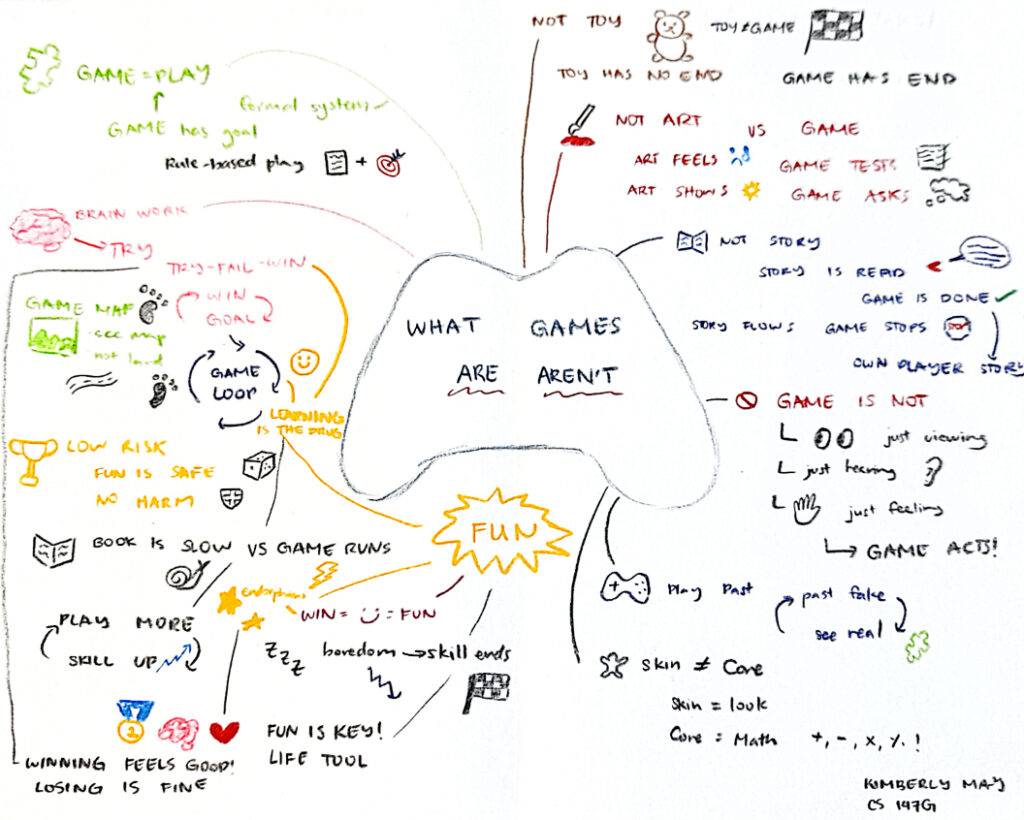 GAME = PLAY
formal system
GAME has goal
Rule-based play
+
BRAIN WORK
TRY
TRY-FAIL-WIN
WIN
GOAL
GAME MAP
see map
not land
GAME
LOOP
LEARNING
IS THE DRUG
LOW RISK
FUN IS SAFE
NO HARM
BOOK IS SLOW VS GAME RUNS
endorphins
WIN = = FUN
PLAY MORE
SKILL UP
ZZZ
boredom → skill ends
2
FUN IS KEY!
LIFE TOOL
WINNING FEELS GOOD!
LOSING IS FINE
WHAT GAMES
ARE AREN'T
FUN
NOT TOY
TOY ≠ GAME
TOY HAS NO END
GAME HAS END
NOT ART VS GAME
ART FEELS GAME TESTS
ART SHOWS GAME ASKS
NOT STORY
STORY IS READ
GAME IS DONE
STORY FLOWS GAME STOPS
STOP
OWN PLAYER STORY
GAME IS NOT
just viewing
just hearing
just feeling
GAME ACTS!
Play Past
past fake
see real
Skin ≠ Core
Skin = look
Core = Math +, -, x, %. !
KIMBERLY MAY
CS 147G